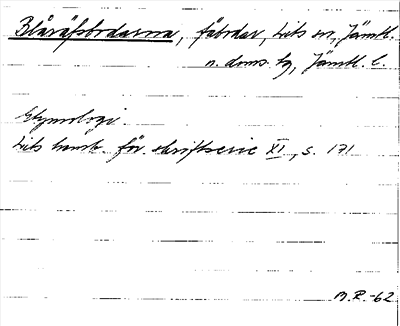 Blåräfsbodarna, fäbodar, Lits sn, Jämtl.
n. doms. tg, Jämtl. l.
Etymologi.
Lits hemb. för. skriftserie XI, s. 171
M.R.-62